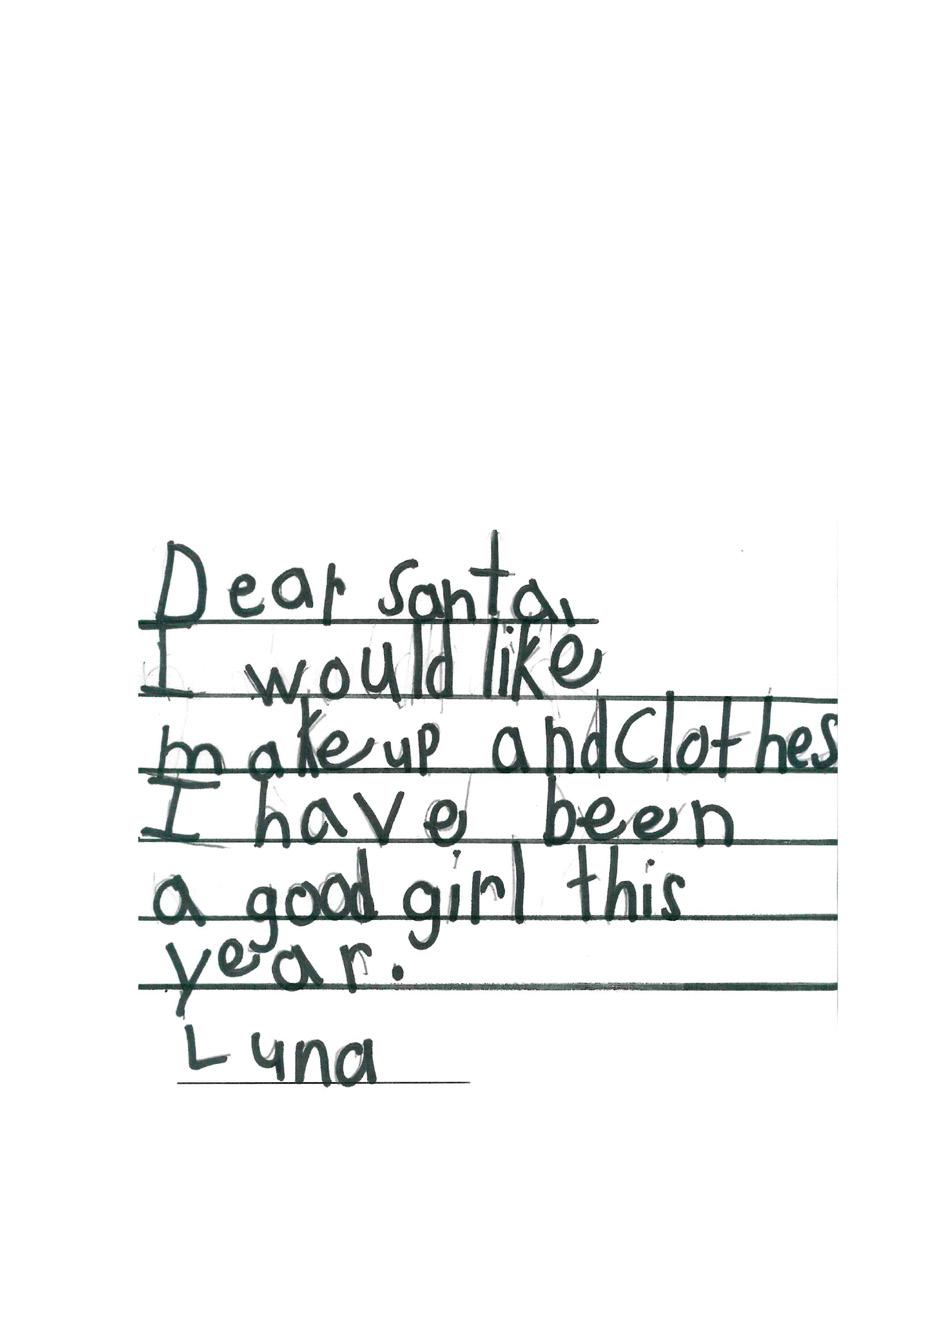 Dear Santa,
I would like
makeup and Clothes
I have been
a good girl this
year.
Luna